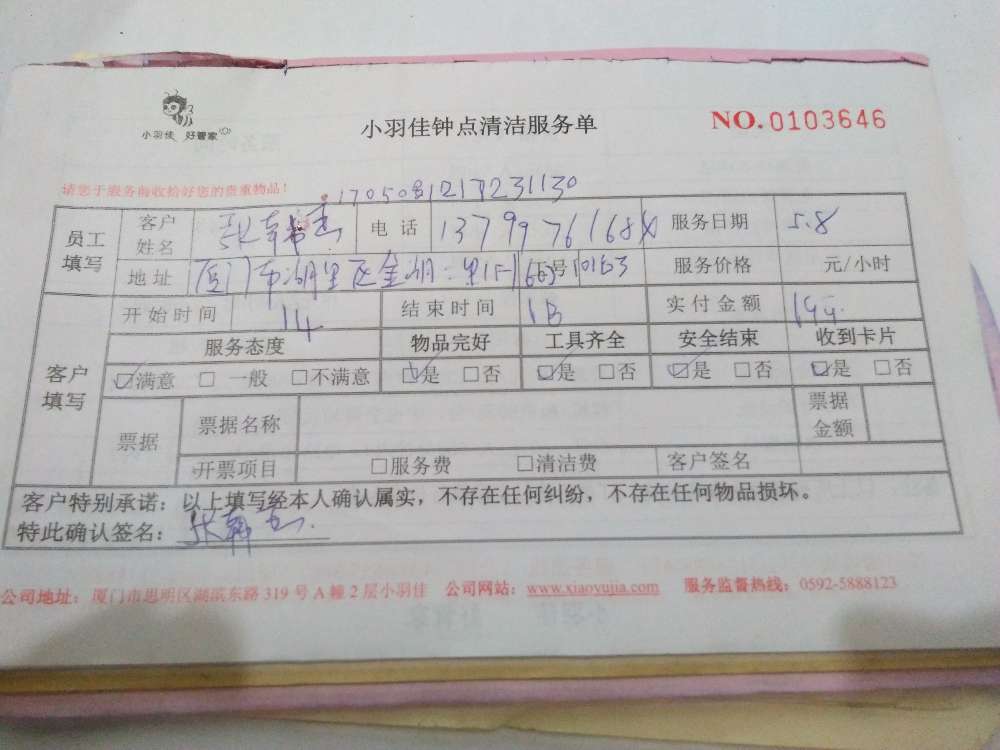 小羽佳 好管家
小羽佳钟点清洁服务单
NO.0103646
请您于服务前收拾好您的贵重物品!
员工填写 客户姓名 张 电话 服务日期 5.8
地址 厦门市湖里区金湖 服务价格 元/小时
客户填写 开始时间 14 结束时间 18 实付金额
服务态度 物品完好 工具齐全 安全结束 收到卡片
☑满意 □一般 □不满意 ☑是 □否 ☑是 □否 ☑是 □否 ☑是 □否
票据 票据名称 票据金额
开票项目 □服务费 □清洁费 客户签名
客户特别承诺:以上填写经本人确认属实,不存在任何纠纷,不存在任何物品损坏。
特此确认签名:张
公司地址:厦门市思明区湖滨东路319号A幢2层小羽佳 公司网站:www.xiaoyujia.com 服务监督热线:0592-5888123